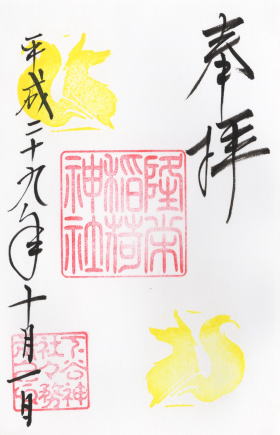 奉拝
隆栄
稲荷
神社
平成二十九年十月一日
下谷神
社々務
所之印